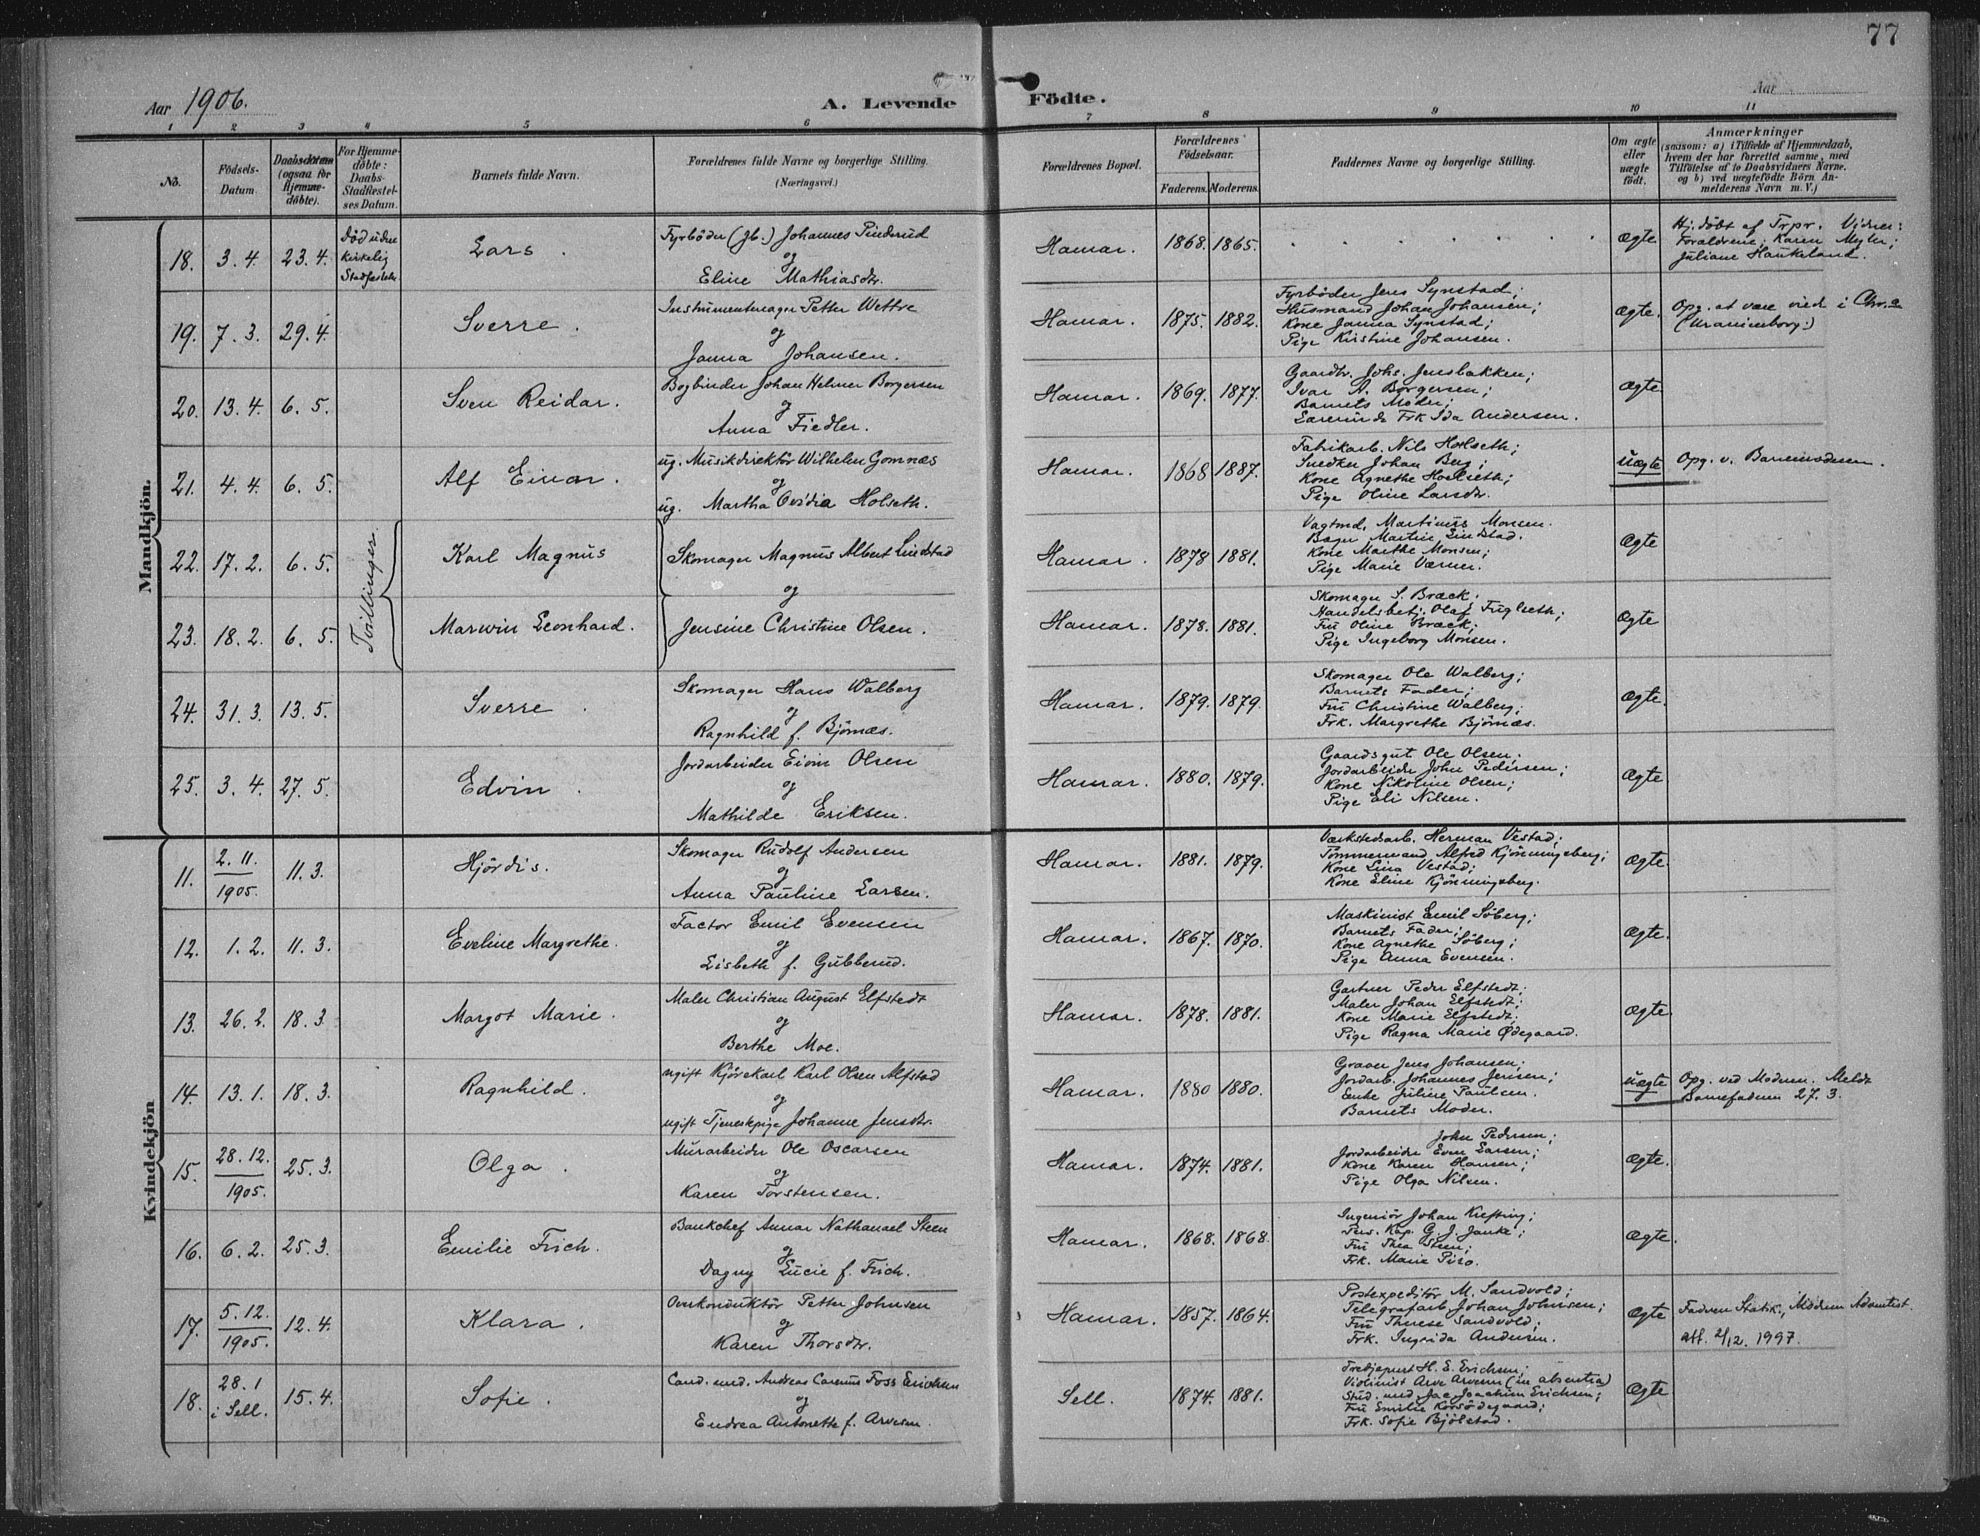 77
Aar 1906.
A. Levende Födte.
Aar
1 2 3 4 5 6 7 8 9 10 11
No.
Födsels-Datum.
Daabsdatum (ogsaa for Hjemmedöbte).
For Hjemmedöbte: Daabs-Stadfæstelses Datum.
Barnets fulde Navn.
Forældrenes fulde Navne og borgerlige Stilling. (Næringsvei.)
Forældrenes Bopæl.
Forældrenes Födselsaar.
Faderens. Moderens.
Faddernes Navne og borgerlige Stilling.
Om ægte eller uægte födt.
Anmærkninger
(saasom: a) i Tilfælde af Hjemmedaab, hvem der har forrettet samme, med Tilföielse af to Daabsvidners Navne, og b) ved uægtefödte Börn Anmelderens Navn m. V.)
Mandkjön.
18. 3. 4. 23. 4. Död uden kirkelig Stadfæstelse
Lars.
Fyrböder (Jb.) Johannes Pinderud
og
Eline Mathiasdtr.
Hamar. 1868. 1865.
ægte
Hj. döbt af Trpr. Vidner:
Forældrene, Karen Myhr;
Juliane Haukeland.
19. 7. 3. 29. 4.
Sverre.
Instrumentmager Petter Wettre
og
Janna Johansen.
Hamar. 1875. 1882.
Fyrböder Jens Synstad;
Husmand Johan Johansen;
Kone Janna Synstad;
Pige Kirstine Johansen.
ægte.
Opg. at være viet i Chr.a
(Uranienborg.)
20. 13. 4. 6. 5.
Sven Reidar.
Bogbinder Johan Helmer Borgersen
og
Anna Fiedler.
Hamar. 1869. 1877.
Gaardbr. Johs. Jensbakken;
Ivar A. Borgersen;
Barnets Moder;
Lærerinde Frk Ida Andersen.
Ægte
21. 4. 4. 6. 5.
Alf Einar.
ug. Musikdirektör Wilhelm Gomnæs
og
ug. Martha Ovidia Holseth.
Hamar. 1868 1887.
Fabrikarb. Nils Holseth;
Snedker Johan Berg;
Kone Agnethe Holseth;
Pige Oline Larsdtr.
uægte
Opg. v. Barnemoderen.
Tvillinger.
22. 17. 2. 6. 5.
Karl Magnus
Skomager Magnus Albert Lindstad
og
Hamar. 1878 1881.
Vagtmd. Martinus Monsen.
Bager Martin Lindstad.
Kone Marthe Monsen;
Pige Marie Værner.
Ægte
23. 18. 2. 6. 5.
Marwin Leonhard.
Jensine Christine Olsen.
Hamar. 1878. 1881.
Skomager S. Bræck.
Handelsbetj. Olaf Fuglseth;
Fru Oline Bræck;
Pige Ingeborg Monsen.
Ægte
24. 31. 3. 13. 5.
Sverre.
Skomager Hans Walberg
og
Ragnhild f. Björnæs.
Hamar. 1879. 1879.
Skomager Ole Walberg;
Barnets Fader;
Fru Christine Walberg;
Frk. Margrethe Björnæs.
Ægte.
25. 3. 4. 27. 5.
Edvin.
Jordarbeider Einar Olsen
og
Mathilde Eriksen.
Hamar. 1880. 1879.
Gaardsgut Ole Olsen.
Jordarbeider John Pedersen;
Kone Nikoline Olsen;
Pige Eli Nilsen.
Ægte
Kvindekjön
11. 2. 11. 1905. 11. 3.
Hjördis.
Skomager Rudolf Andersen
og
Anna Pauline Larsen.
Hamar. 1881. 1879.
Værkstedsarb. Herman Vestad;
Tömmermand Alfred Kjönningsberg;
Kone Lina Vestad;
Kone Eline Kjönningsberg.
Ægte.
12. 1. 2. 11. 3.
Eveline Margrethe.
Factor Emil Evensen
og
Lisbeth f. Gubberud.
Hamar. 1867. 1870.
Maskinist Emil Söberg;
Barnets Fader;
Kone Agnethe Söberg;
Pige Anna Evensen.
Ægte.
13. 26. 2. 18. 3.
Margot Marie.
Maler Christian August Elfstedt
og
Berthe Moe.
Hamar. 1878. 1881.
Gartner Peder Elfstedt;
Maler Johan Elfstedt;
Kone Marie Elfstedt;
Pige Ragna Marie Ødegaard.
Ægte.
14. 13. 1. 18. 3.
Ragnhild.
ugift Kjörekarl Karl Olsen Alfstad
og
ugift Tjenestepige Johanne Jensdtr.
Hamar. 1880 1880.
Graver Jens Johansen;
Jordarb. Johannes Jensen;
Enke Juline Paulsen.
Barnets Moder.
uægte
Opg. ved Moderen. Meldt
Barnefaderen 27. 3.
15. 28. 12. 1905. 25. 3.
Olga.
Murarbeider Ole Oscarsen
og
Karen Torstensen.
Hamar. 1874. 1881.
John Pedersen;
Jordarbeider Even Larsen;
Kone Karen Hansen;
Pige Olga Nilsen.
Ægte.
16. 6. 2. 25. 3.
Emilie Frich.
Bankchef Annar Nathanael Steen
og
Dagny Lucie f. Frich.
Hamar. 1868. 1868.
Ingeniör Johan Kiefting;
Pers. Kap. G. J. Janke;
Fru Thea Steen;
Frk. Marie Piro.
Ægte.
17. 5. 12. 1905. 12. 4.
Klara.
Overkonduktör Petter Johnsen
og
Karen Thorsdtr.
Hamar. 1857. 1864.
Postexpeditör M. Sandvold;
Telegrafarb. Johan Johnsen;
Fru Therese Sandvold;
Frk. Ingrida Andersen.
Ægte
Faderen Statsk., Moderen Adventist.
att. 2/12. 1997.
18. 28. 1 i Sell. 15. 4.
Sofie.
Cand. med. Andreas Foss Erichsen
og
Endrea Antonette f. Arvesen.
Sell. 1874. 1881.
Tredjeprest H. E. Erichsen;
Violinist Arve Arvesen (in absentia)
Stud. med. Jac. Joachim Erichsen;
Fru Emilie Korsödegaard;
Frk. Sofie Bjölstad.
Ægte